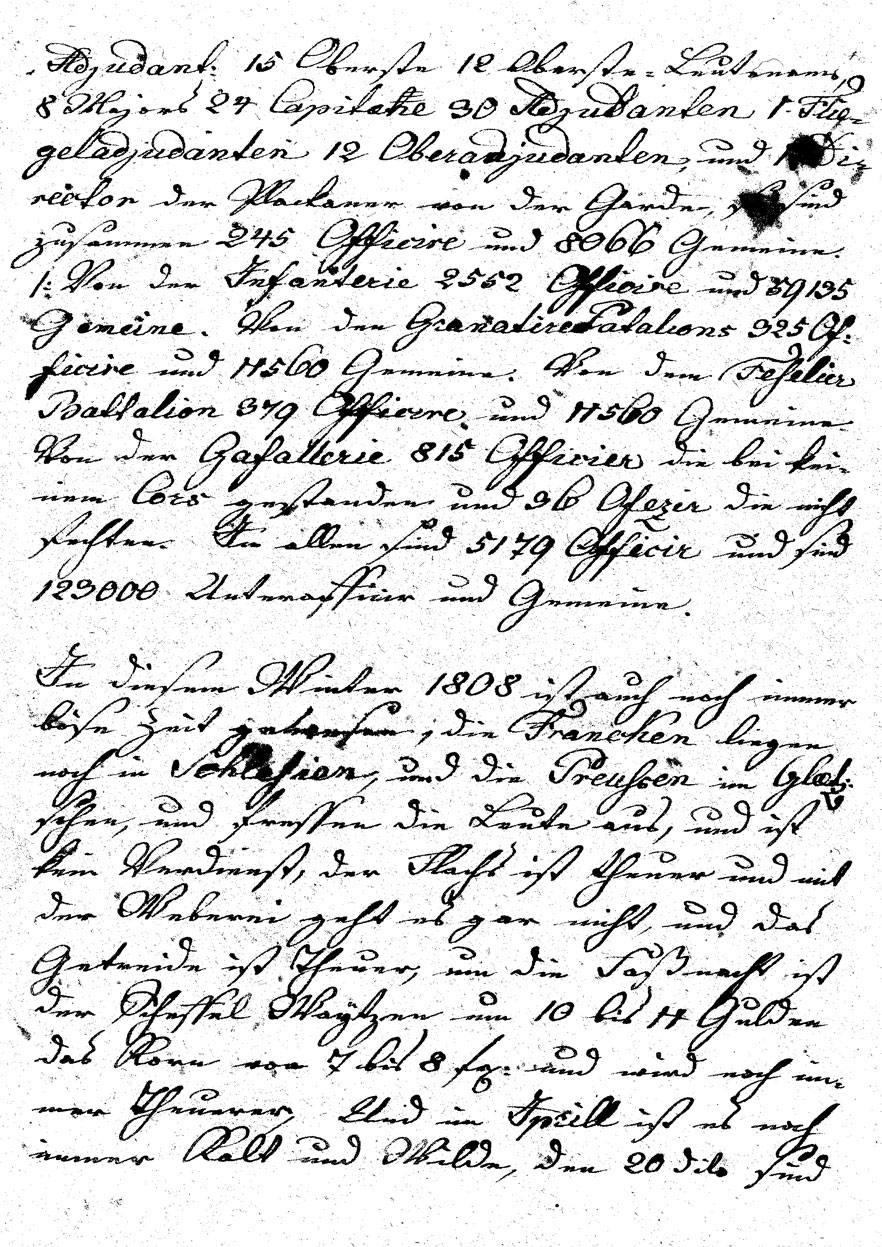 Adjudant: 15 Oberste 12 Oberste=Leutenams,
8 Majors 24 Capiteine 30 Adjudanten 1 Flü-
geladjudanten 12 Oberadjudanten, und 1 Di-
rector der Plackaner von der Garde, so sind
zusammen 245 Officire und 8066 Gemeine.
/: Von der Infanterie 2552 Officire und 39135
Gemeine. Von den Granatire Patalions 325 Of:
ficire und 11560 Gemeine. Von dem Feselier
Battalion 379 Officire und 11560 Gemeine
Von der Gafallerie 815 Officier die bei kei-
nem Cors gestanden und 36 Ofezir die nicht
fechten. In allen sind 5179 Officir und sind
123000 Unteroffiier und Gemeine.
In diesem Winter 1808 ist auch noch immer
böse Zeit gewesen, die Francken liegen
noch in Schlesien, und die Preussen im Glat:
schen, und fressen die Leute aus, und ist
kein Verdienst, der Flachs ist theuer und mit
der Weberei geht es gar nicht, und das
Getreide ist Theuer, um die Faßnacht ist
der Scheffel Waytzen um 10 bis 11 Gulden
das Korn von 7 bis 8 fx: und wird noch im-
mer Theuerer, Und im Iprill ist es noch
immer Kalt und Wilde, den 20 dito sind